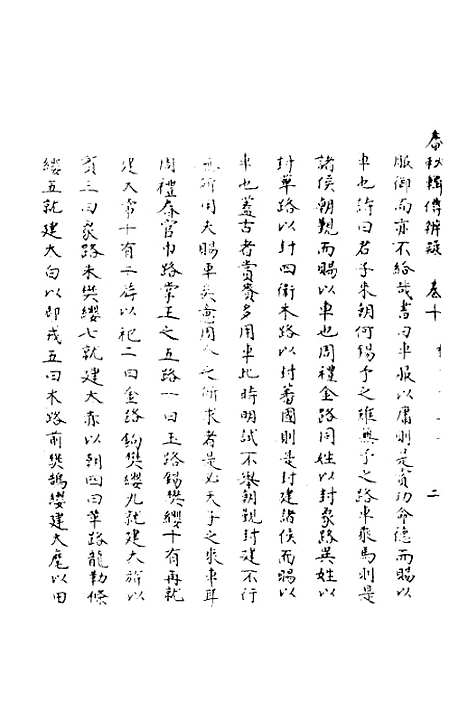 春秋輯傳辨疑 卷十 二
服御而亦不給哉書曰車服以庸則是賞功命德而賜以
車也詩曰君子來朝何錫予之雖無予之路車乘馬則是
諸侯朝覲而賜以車也周禮金路同姓以封象路異姓以
封革路以封四衛木路以封蕃國則是封建諸侯而賜以
車也蓋古者賞賚多用車此時明試不舉朝覲封建不行
無所用夫賜車矣意周人之所求者是必天子之乘車耳
周禮春官巾路掌王之五路一曰玉路錫樊纓十有再就
建大常十有二斿以祀二曰金路鉤樊纓九就建大旂以
賓三曰象路朱樊纓七就建大赤以朝四曰革路龍勒條
纓五就建大白以即戎五曰木路前樊鵠纓建大麾以田